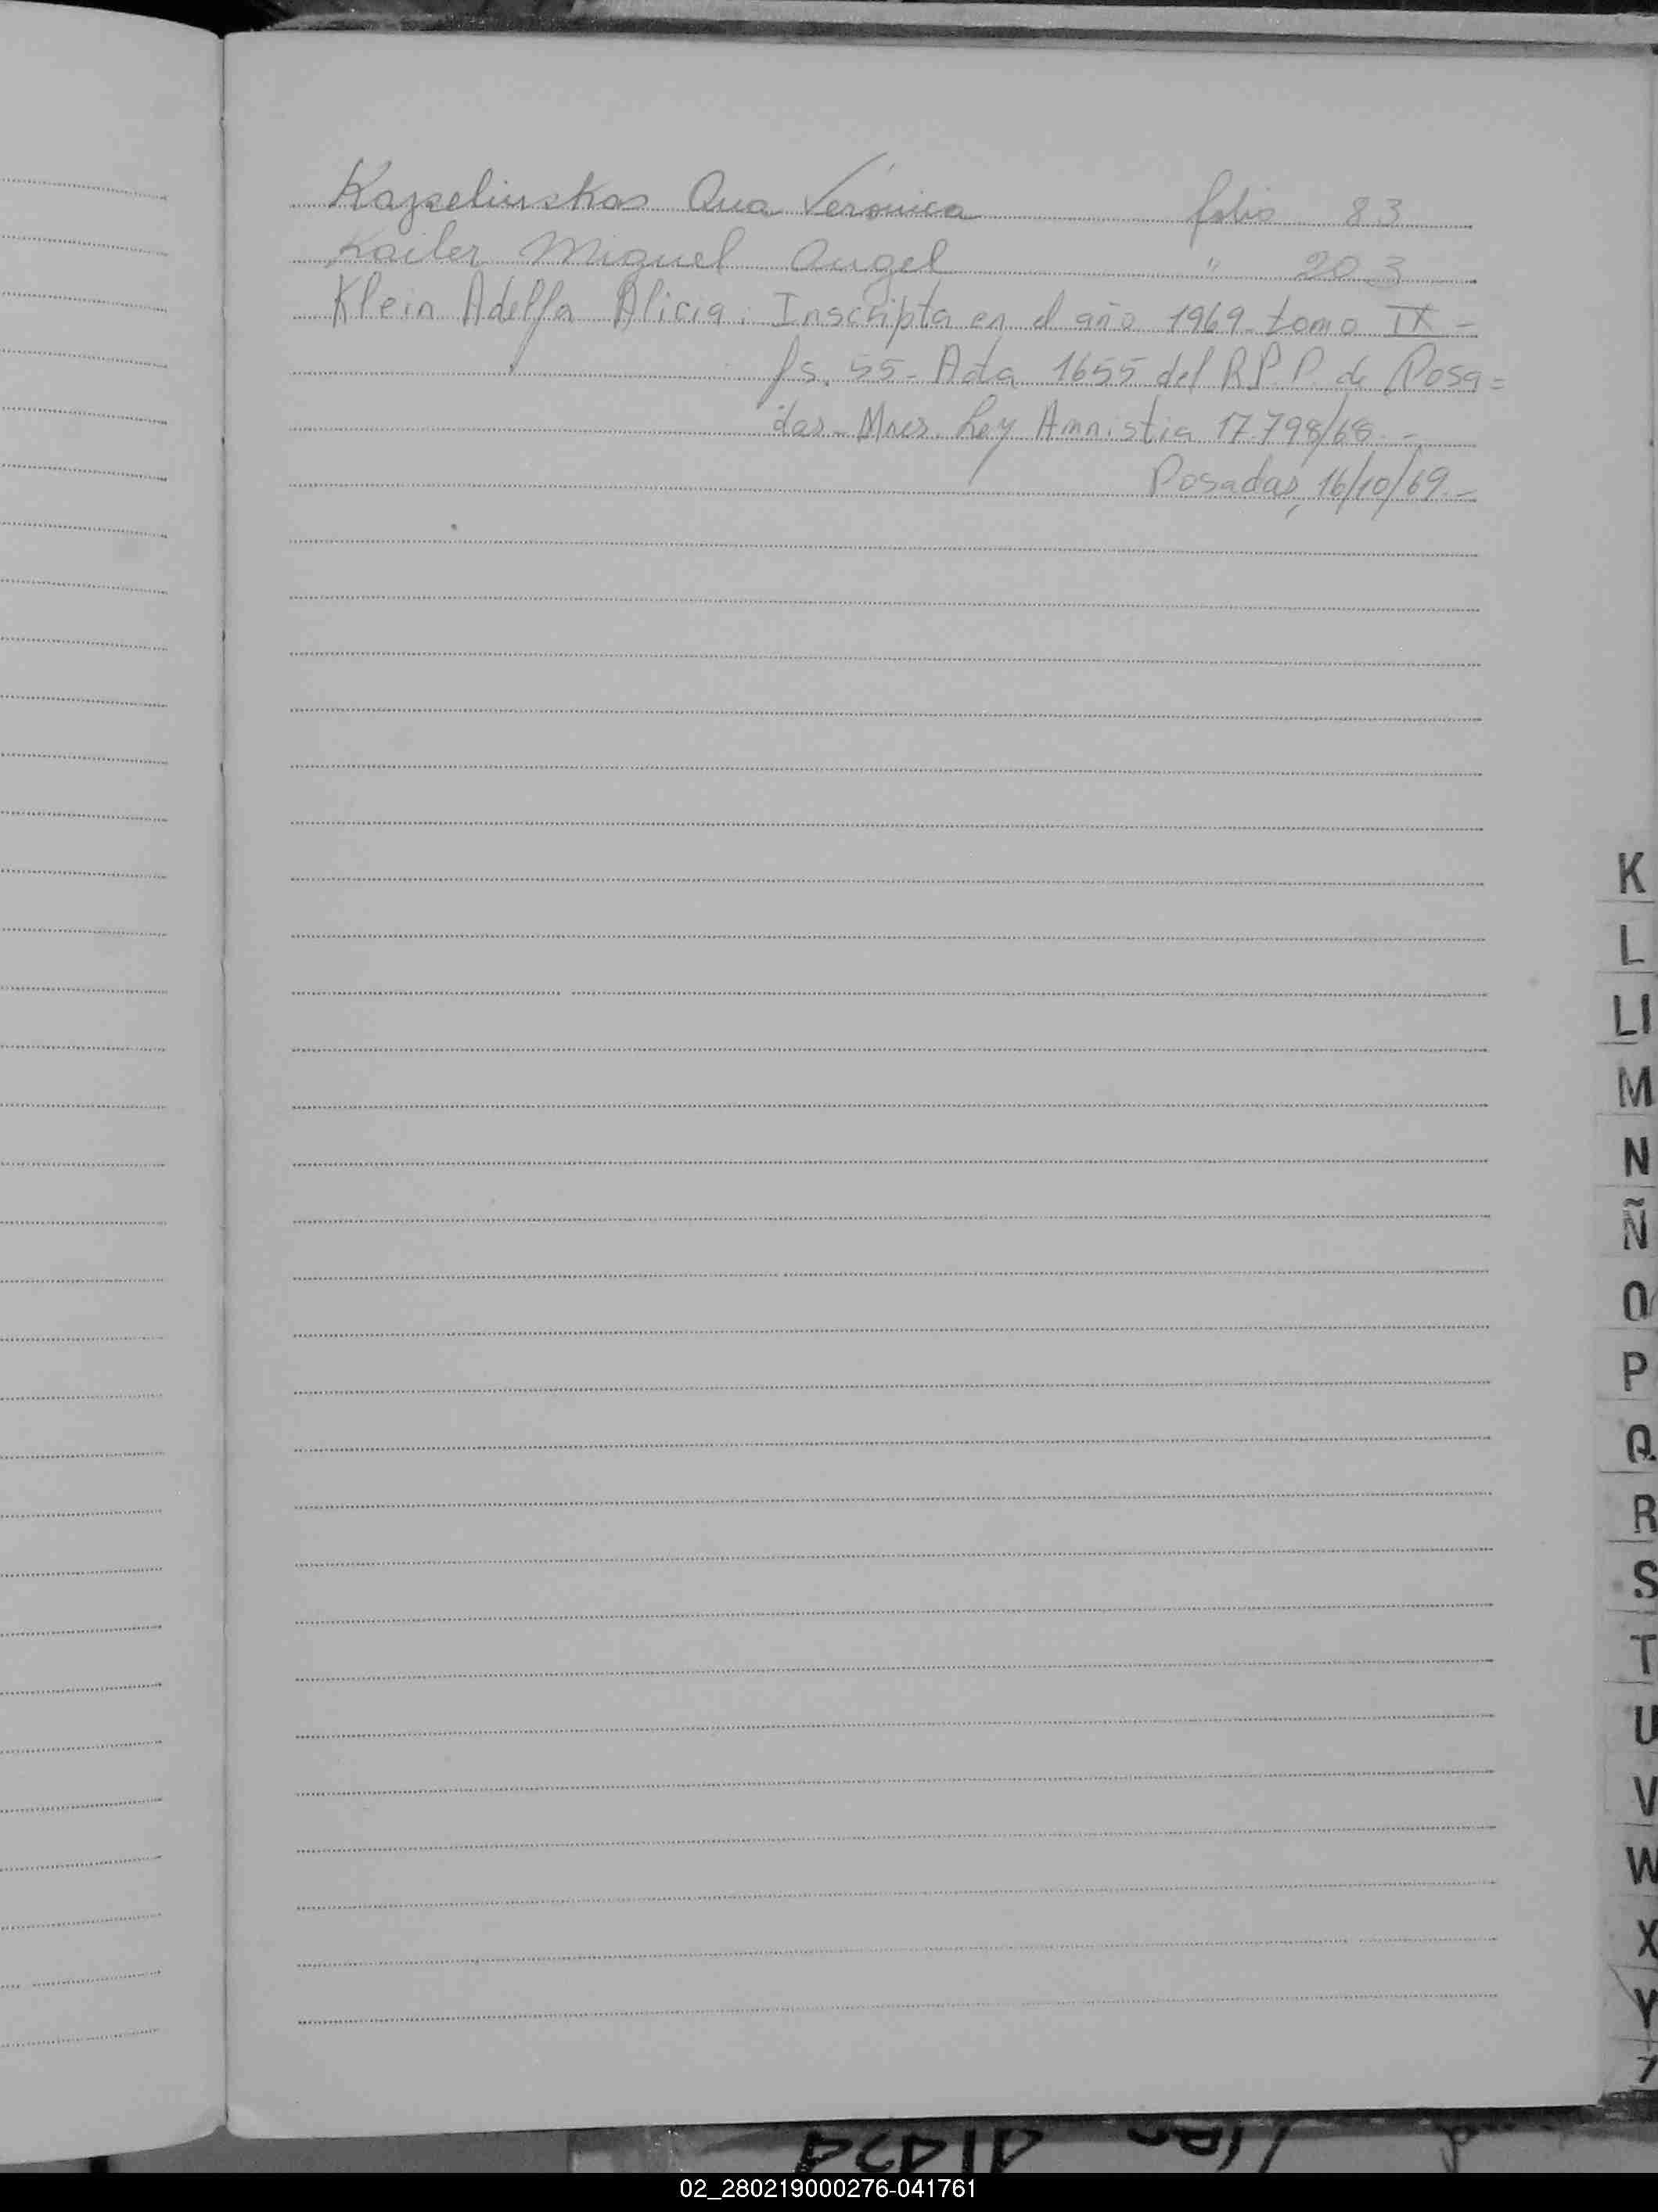 Kazselinskas Ana Verónica folio 83
Kailer Miguel Angel " 203
Klein Adelfa Alicia. Inscripta en el año 1969 tomo IX -
fs. 55 - Acta 1655 del R.P.P. de Posa=
das - Mnes. Ley Amnistia 17.798/68 -
Posadas, 16/10/69. -
K
L
Ll
M
N
Ñ
O
P
Q
R
S
T
U
V
W
X
Y
02_280219000276-041761